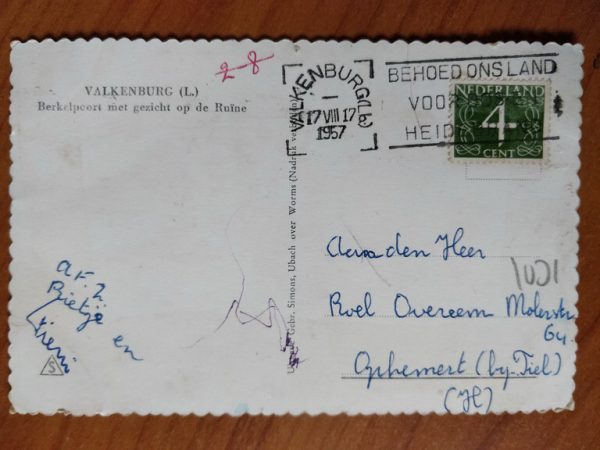 2-8
VALKENBURG (L.)
Berkelpoort met gezicht op de Ruïne
VALKENBURG (L.b)
17 VIII 17
1957
BEHOED ONS LAND
VOO
HEID
NEDERLAND
4
CENT
Uitgave Gebr. Simons, Ubach over Worms (Nadruk
Aan den Heer
Roel Overeem Molenstr
Ophemert (by Tiel)
(H)
afz.
Rietje en
S